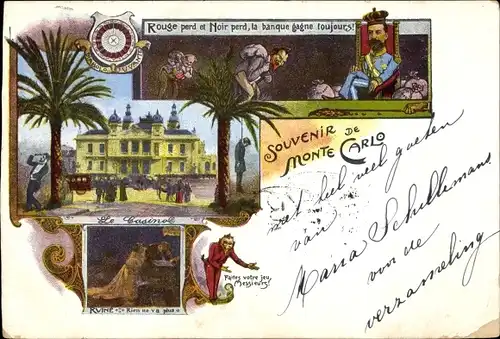 Rouge perd et Noir perd, la banque gagne toujours!
SOUVENIR DE
MONTE CARLO
Le Casino
RUINÉ "Rien ne va plus"
Faites votre jeu,
Messieurs!
met heel veel groeten
van
Maria Schellemans
voor de
verzameling